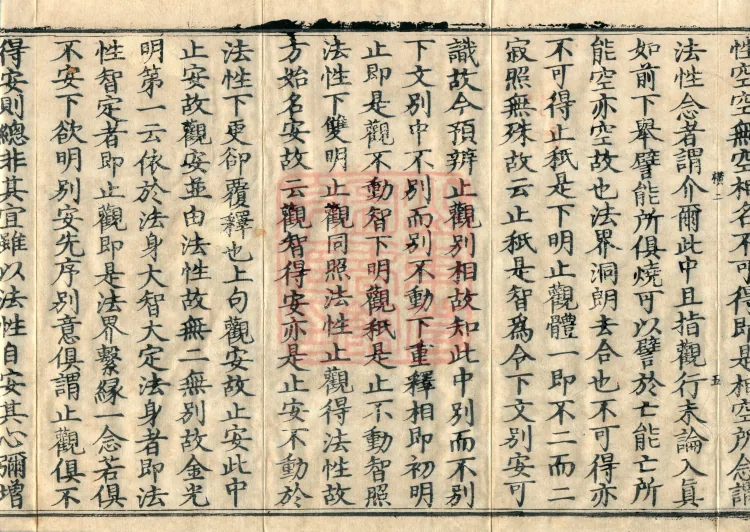 性空空無空相名不可得即是相空所念謂
法性念者謂介爾此中且指觀行未論入真
如前下舉譬能所俱燒可以譬於亡能亡所
能空亦空故也法界洞朗去合也不可得亦
不可得止秖是下明止觀體一即不二而二
寂照無殊故云止秖是智爲令下文別安可
識故今預辨止觀別相故知此中別而不別
下文別中不別而別不動下重釋相即初明
止即是觀不動智下明觀秖是止不動智照
法性下雙明止觀同照法性止觀得法性故
方始名安故云觀智得安亦是止安不動於
法性下更卻覆釋也上句觀安故止安此中
止安故觀安並由法性故無二無別故金光
明第一云依於法身大智大定法身者即法
性智定者即止觀即是法界繫緣一念若俱
不安下欲明別安先序別意俱謂止觀俱不
得安則總非其宜雖以法性自安其心彌增
橫二
五